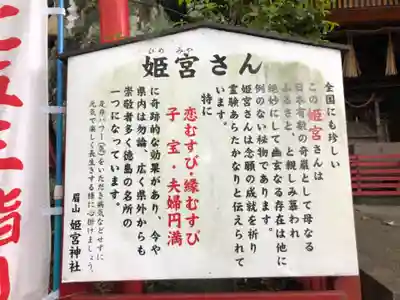 姫宮さん
ひめ みや
全国にも珍しい
この姫宮さんは
日本有数の奇巌として母なる
ふるさと、と親しみ慕われ
絶妙にして幽玄なる存在は他に
例のない秘物であります。
姫宮さんは念願の成就を祈り
霊験あらたかなりと伝えられて
特に
恋むすび・縁むすび
子宝・夫婦円満
に奇跡的な効果があり、今や
県内は勿論、広く県外からも
崇敬者多く徳島の名所の
一つになっています。
是非パワー(気)をいただき病気などせずに
元気で楽しく長生きする様に心掛けましょう。
眉山 姫宮神社
七五三詣